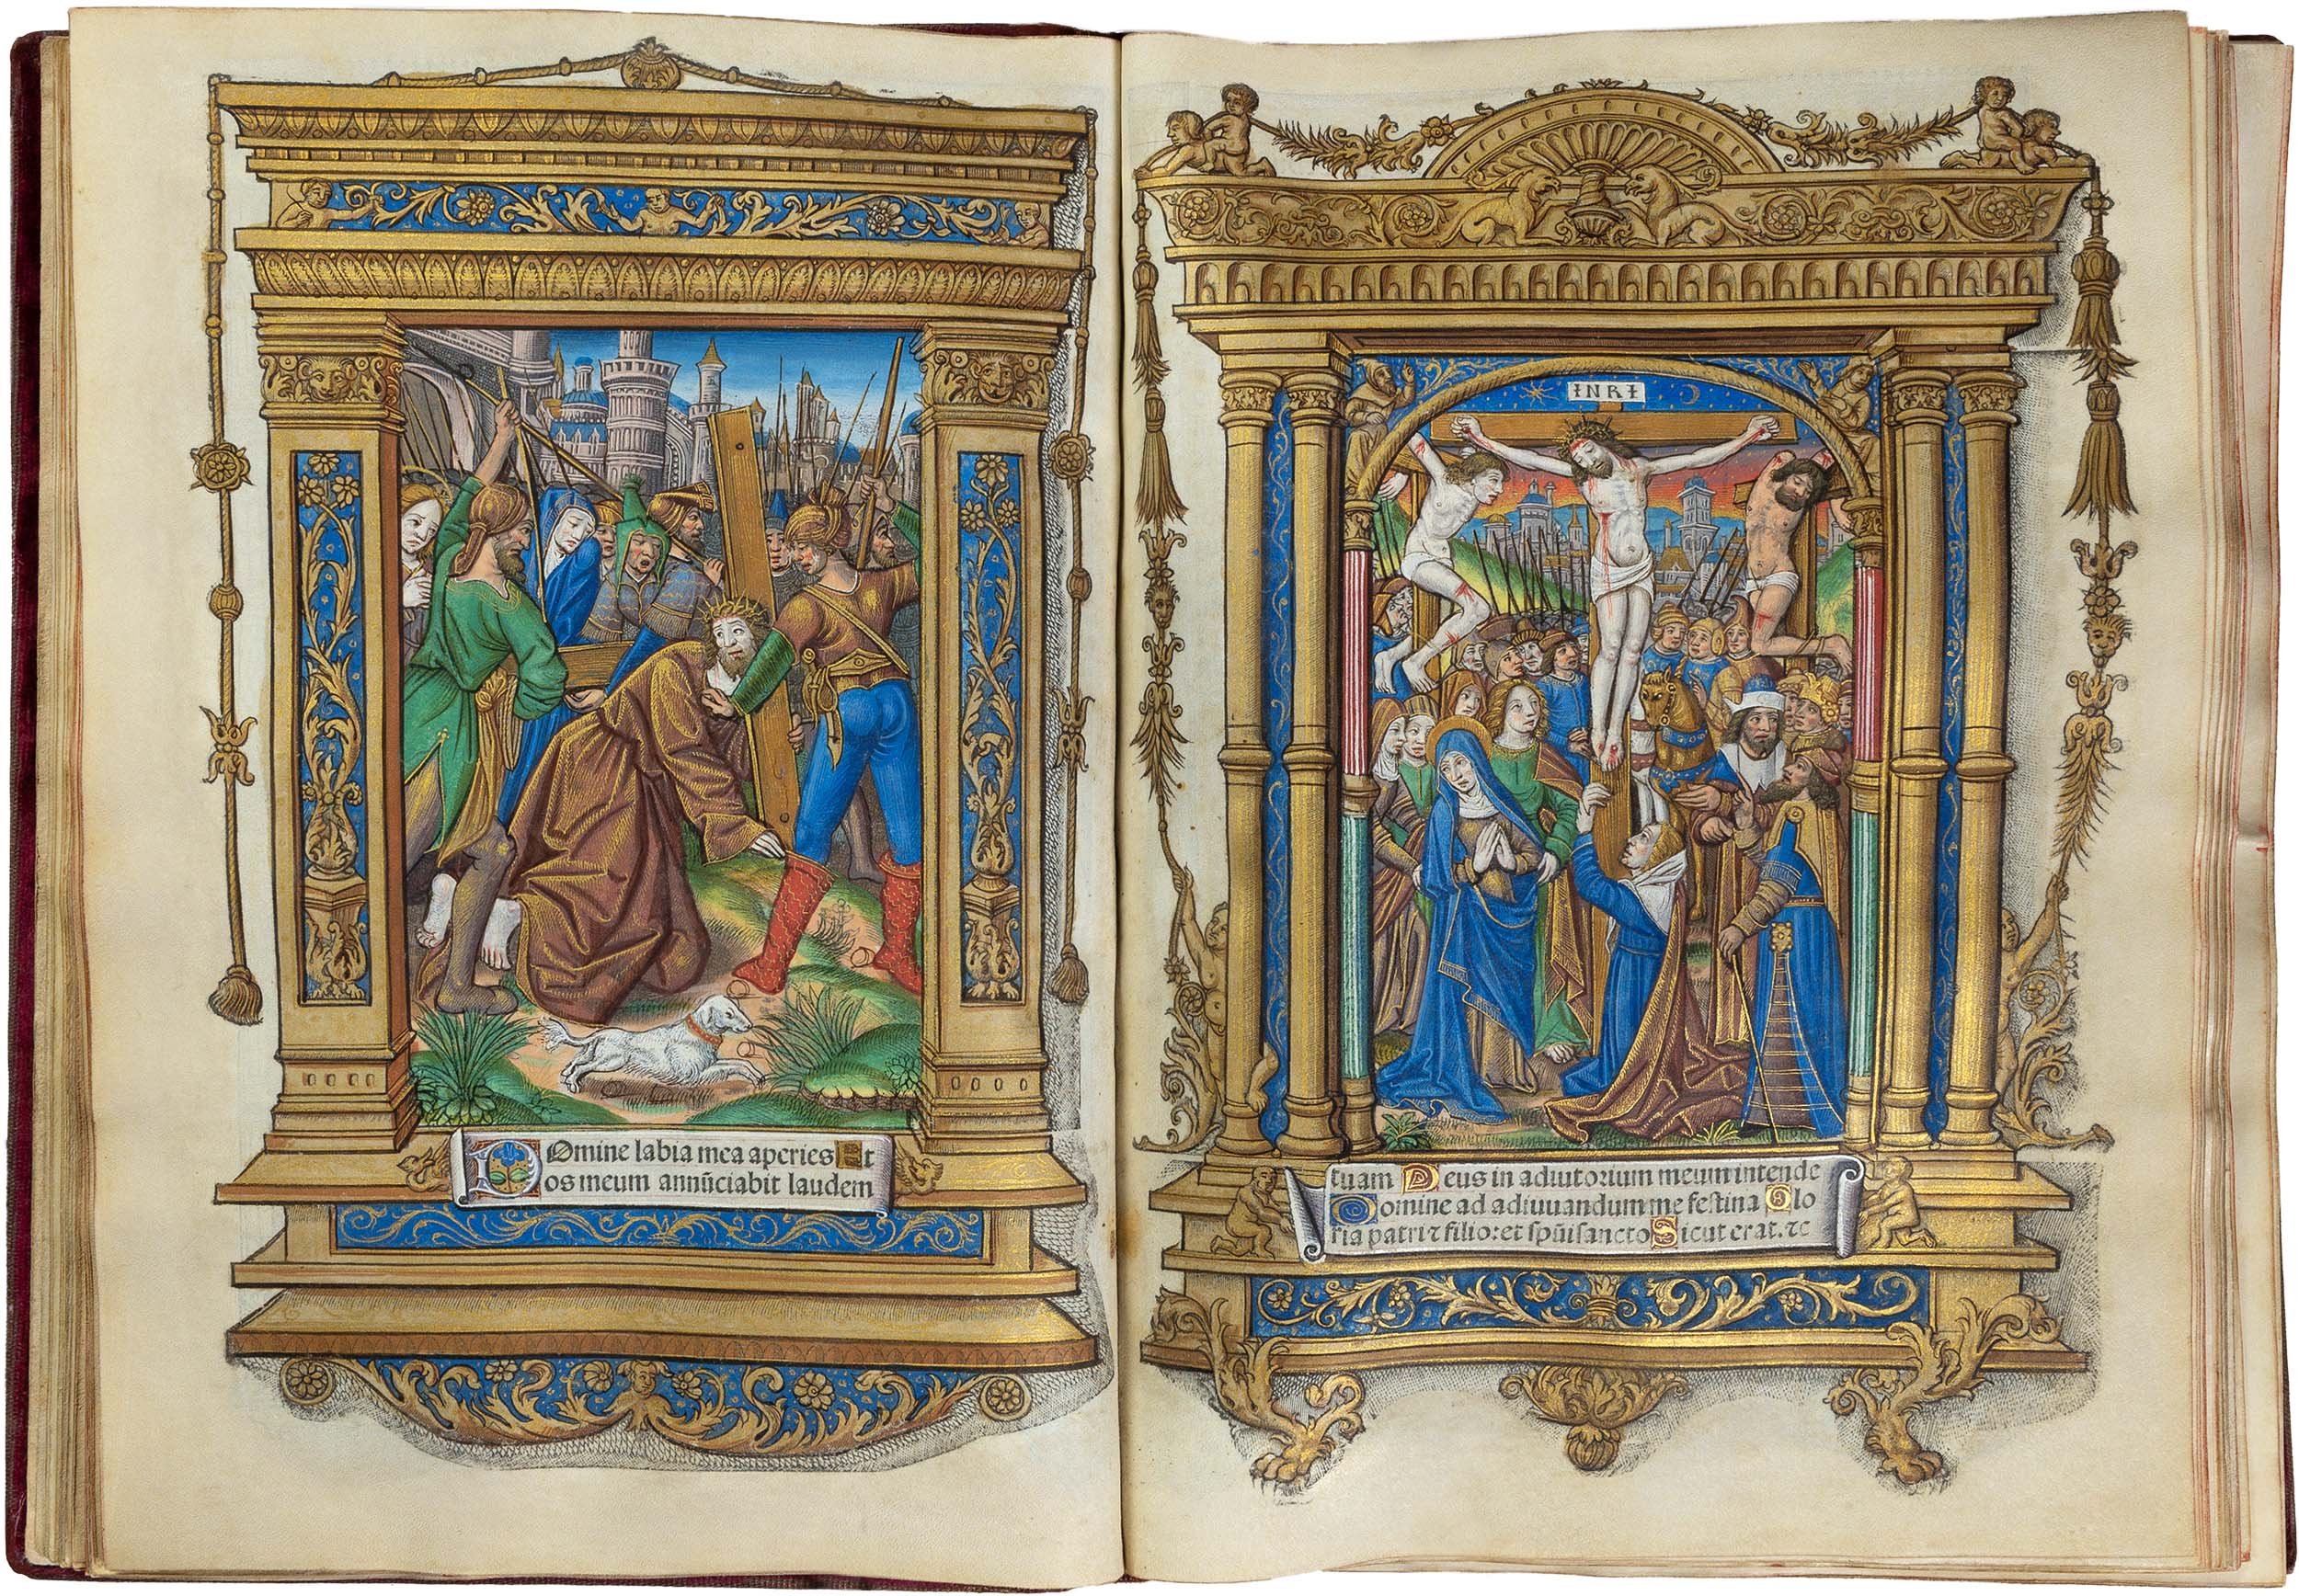 Domine labia mea aperies Et
os meum annũciabit laudem
INRI
tuam Deus in adiutorium meum intende
Domine ad adiuuandum me festina Glo
ria patri ⁊ filio: et spũi sancto Sicut erat. ⁊c